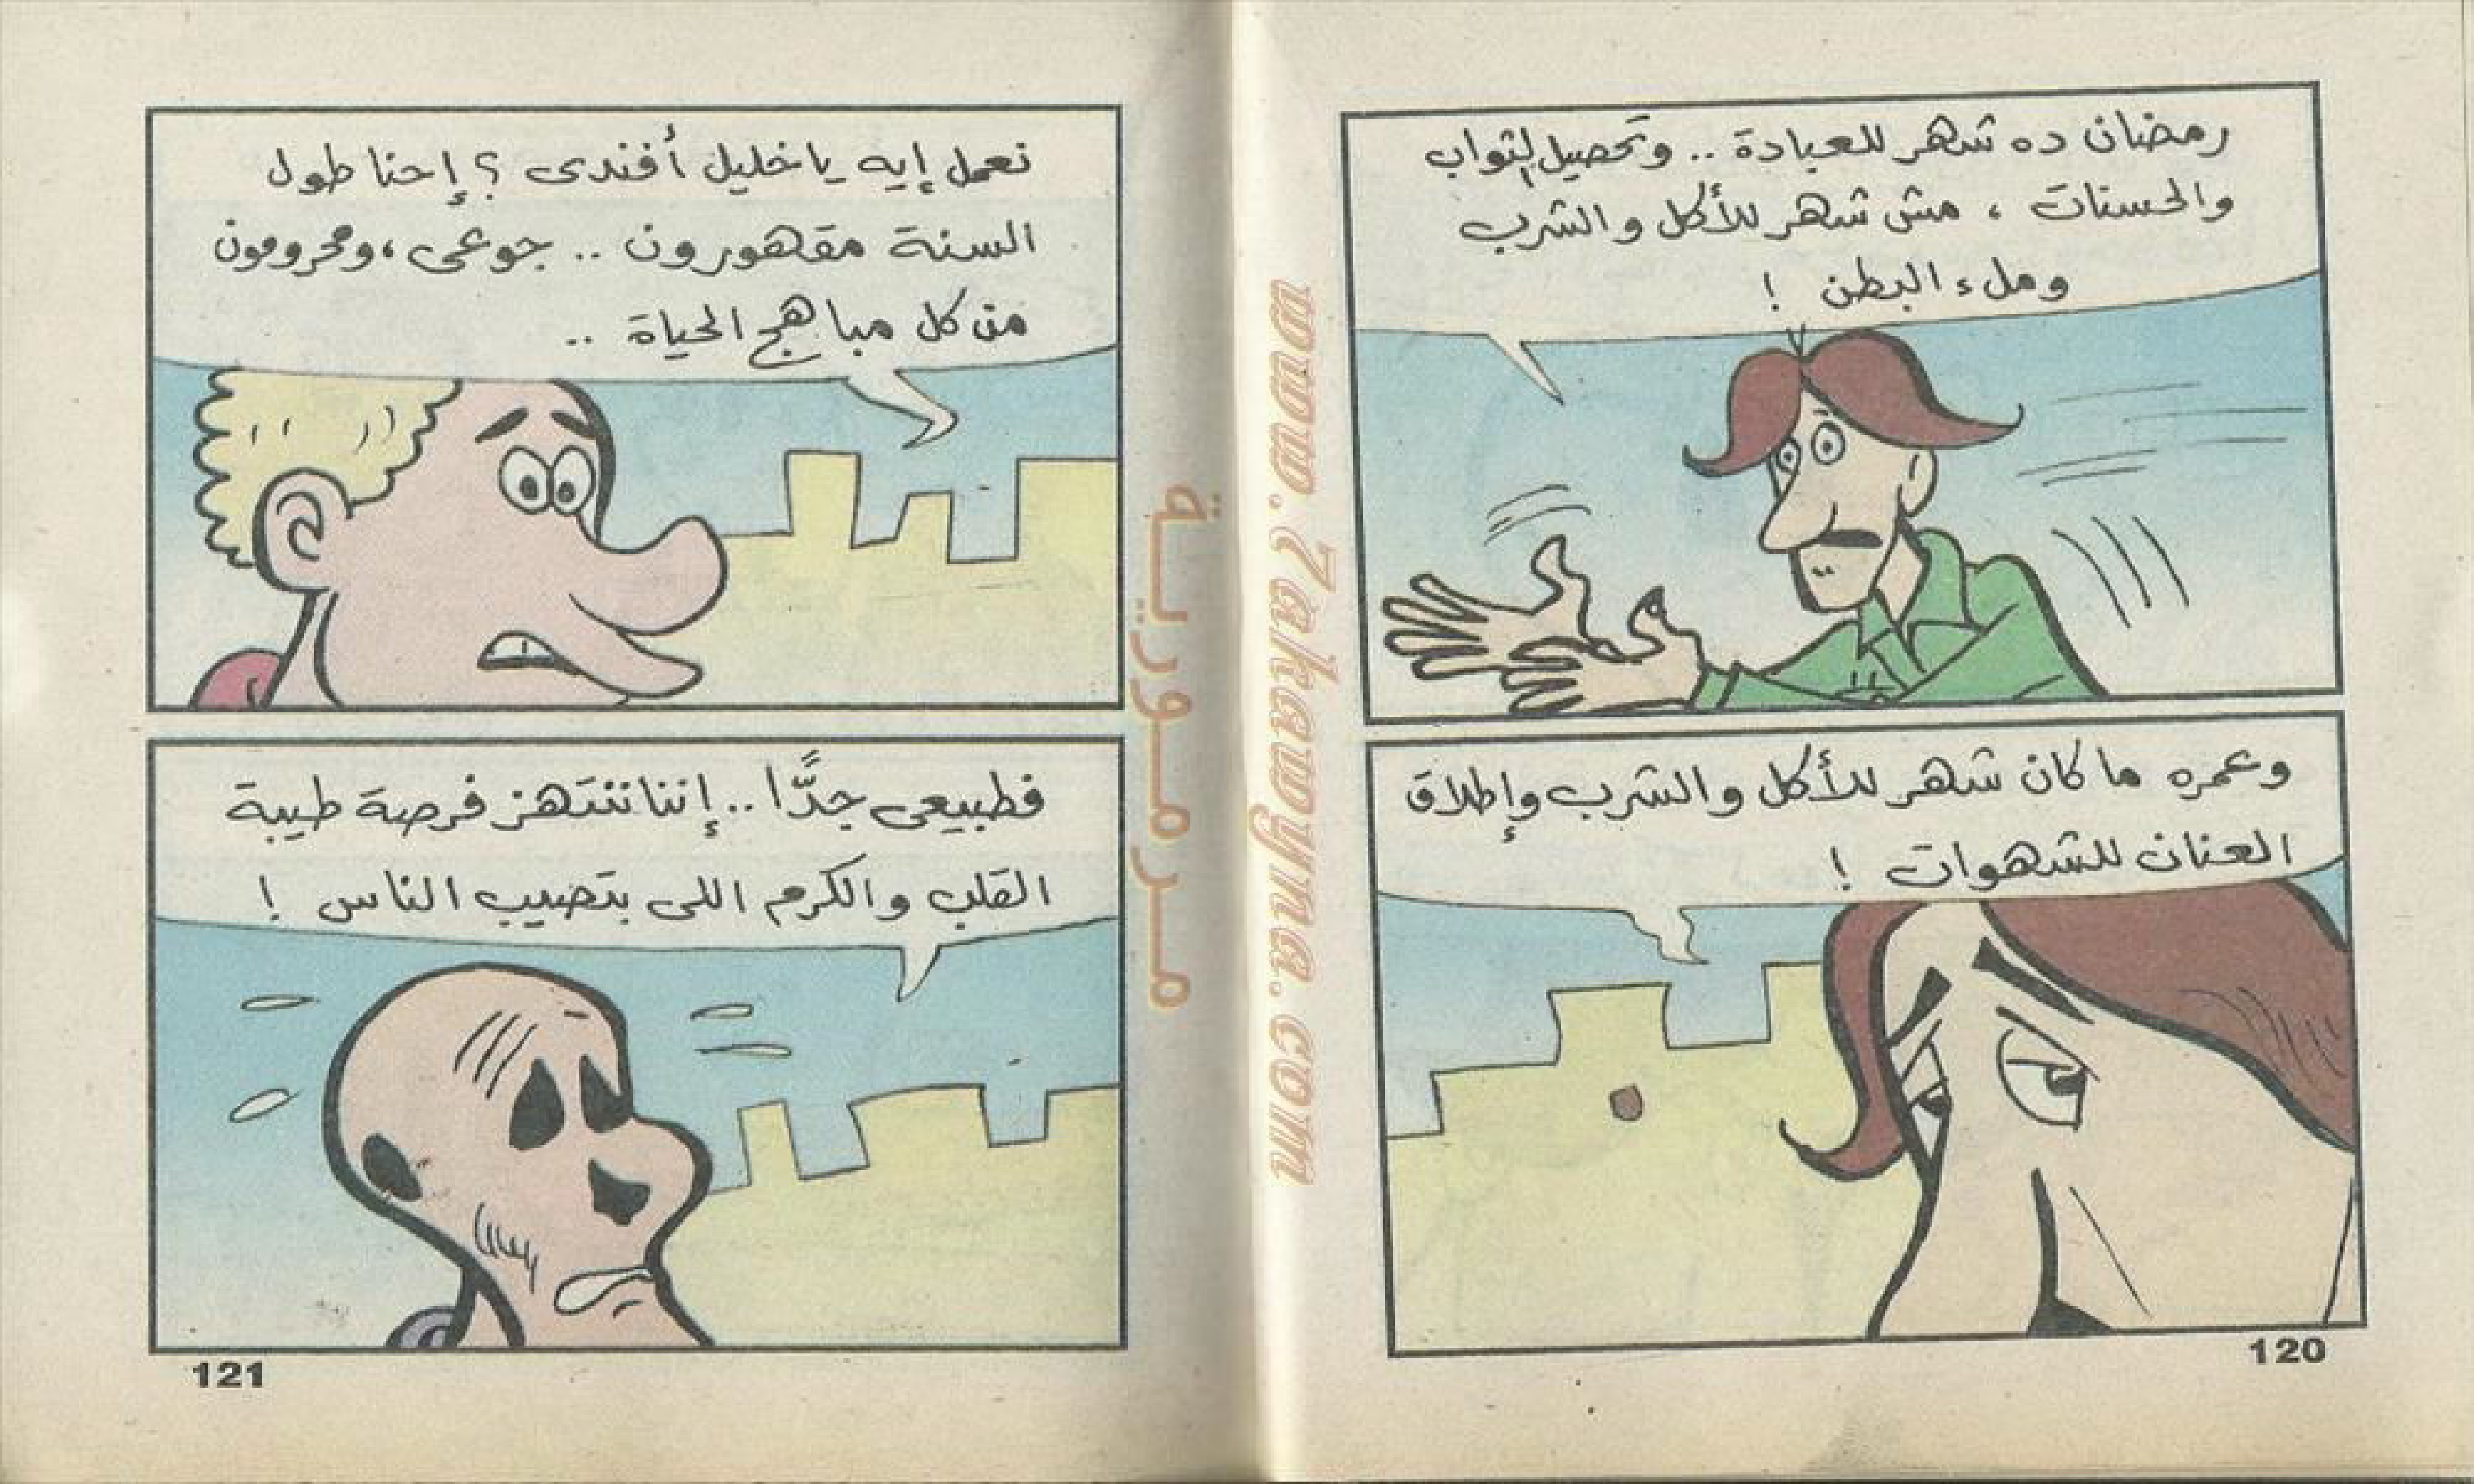 رمضان ده شهر للعبادة .. وتحصيل الثواب
والحسنات ، مش شهر للأكل والشرب
وملء البطن !
وعمره ما كان شهر للأكل والشرب وإطلاق
العنان للشهوات !
120
نعمل إيه يا خليل أفندى ؟ إحنا طول
السنة مقهورون .. جوعى ، ومحرومون
من كل مباهج الحياة ..
فطبيعى جدًّا .. إننا ننتهز فرصة طيبة
القلب والكرم اللى بتصيب الناس !
121
مرمورية
www.7akawyna.com